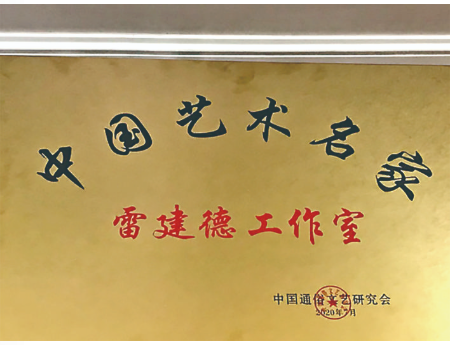 中国艺术名家
雷建德工作室
中国通俗文艺研究会
2020年7月